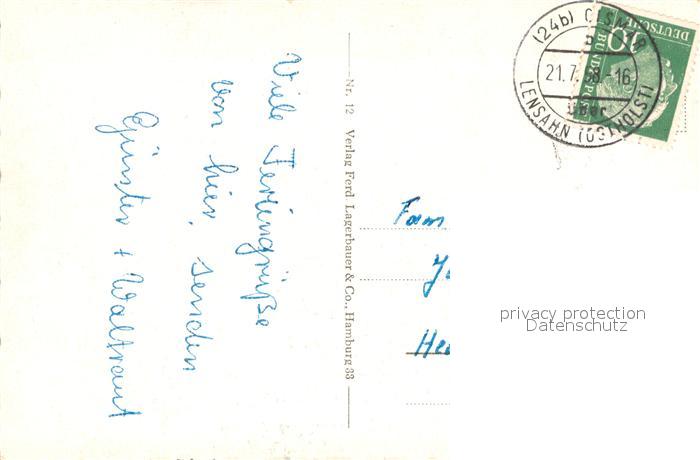 Viele Feriengrüße
von hier, senden
Günter + Waltraut
Nr. 12 Verlag Ferd Lagerbauer & Co., Hamburg 33
(24b) CISMAR
21.7.58-16
über
LENSAHN (OSTHOLST)
10
DEUTSCHE
BUNDESPOST
Fam
He
privacy protection
Datenschutz